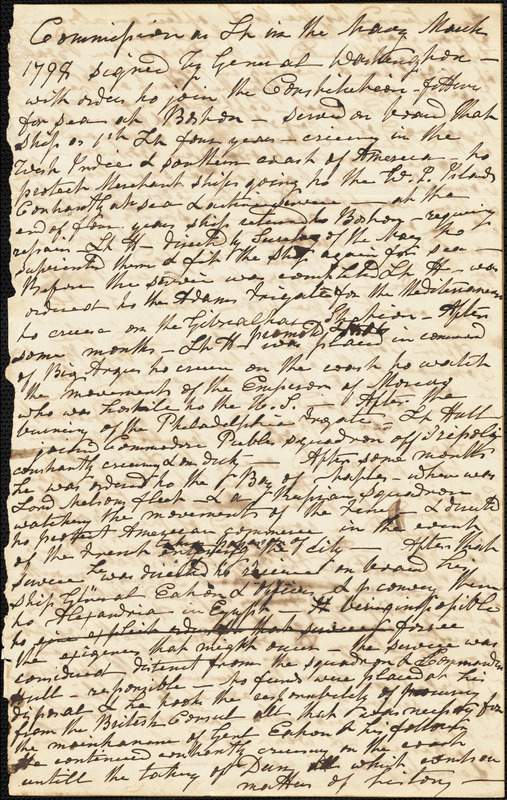 Commission as Lt in the Navy March
1798 signed by General Washington —
with orders to join the Constitution — fitting
for sea at Boston — served on board that
ship as 1st Lt four years — cruising in the
West Indies & southern coast of America to
protect Merchant ships going to the W. I. Islands
Constantly at sea & active service — at the
end of four years ship returned to Boston — requiring
repairs — Lt H — directed by Secretary of the Navy to
superintend them & fit the ship again for sea —
Before the service was completed Lt H — was
ordered to the Adams frigate for the Mediterranean
to cruise on the Gibraltar Station — After
some months — Lt H — was placed in command
of Brig Argus to cruise on the coast to watch
the movements of the Emperor of Morocco
who was hostile to the U. S. — After the
burning of the Philadelphia frigate — Lt Hull
joined Commodore Prebles squadron off Tripoli
constantly cruising & on duty — After some months
he was ordered to the Bay of Naples — where was
Lord Nelsons fleet — & a squadron
watching the movements of the French & directed
to protect American commerce in the event
of the French of City — After that
service he was directed to receive on board his
ship General Eaton & officers & to convey them
to Alexandria in Egypt — It being impossible
to give explicit orders in that service foresee
the exigences that might occur — the service was
considered distinct from the squadron & Commander
Hull — responsible — no funds were placed at his
disposal & he took the responsibility of
from the British Consul all that was necessary for
the maintenance of Genl Eaton & his followers
He continued constantly cruising on the coast
untill the taking of Derne all which events are
matters of history —